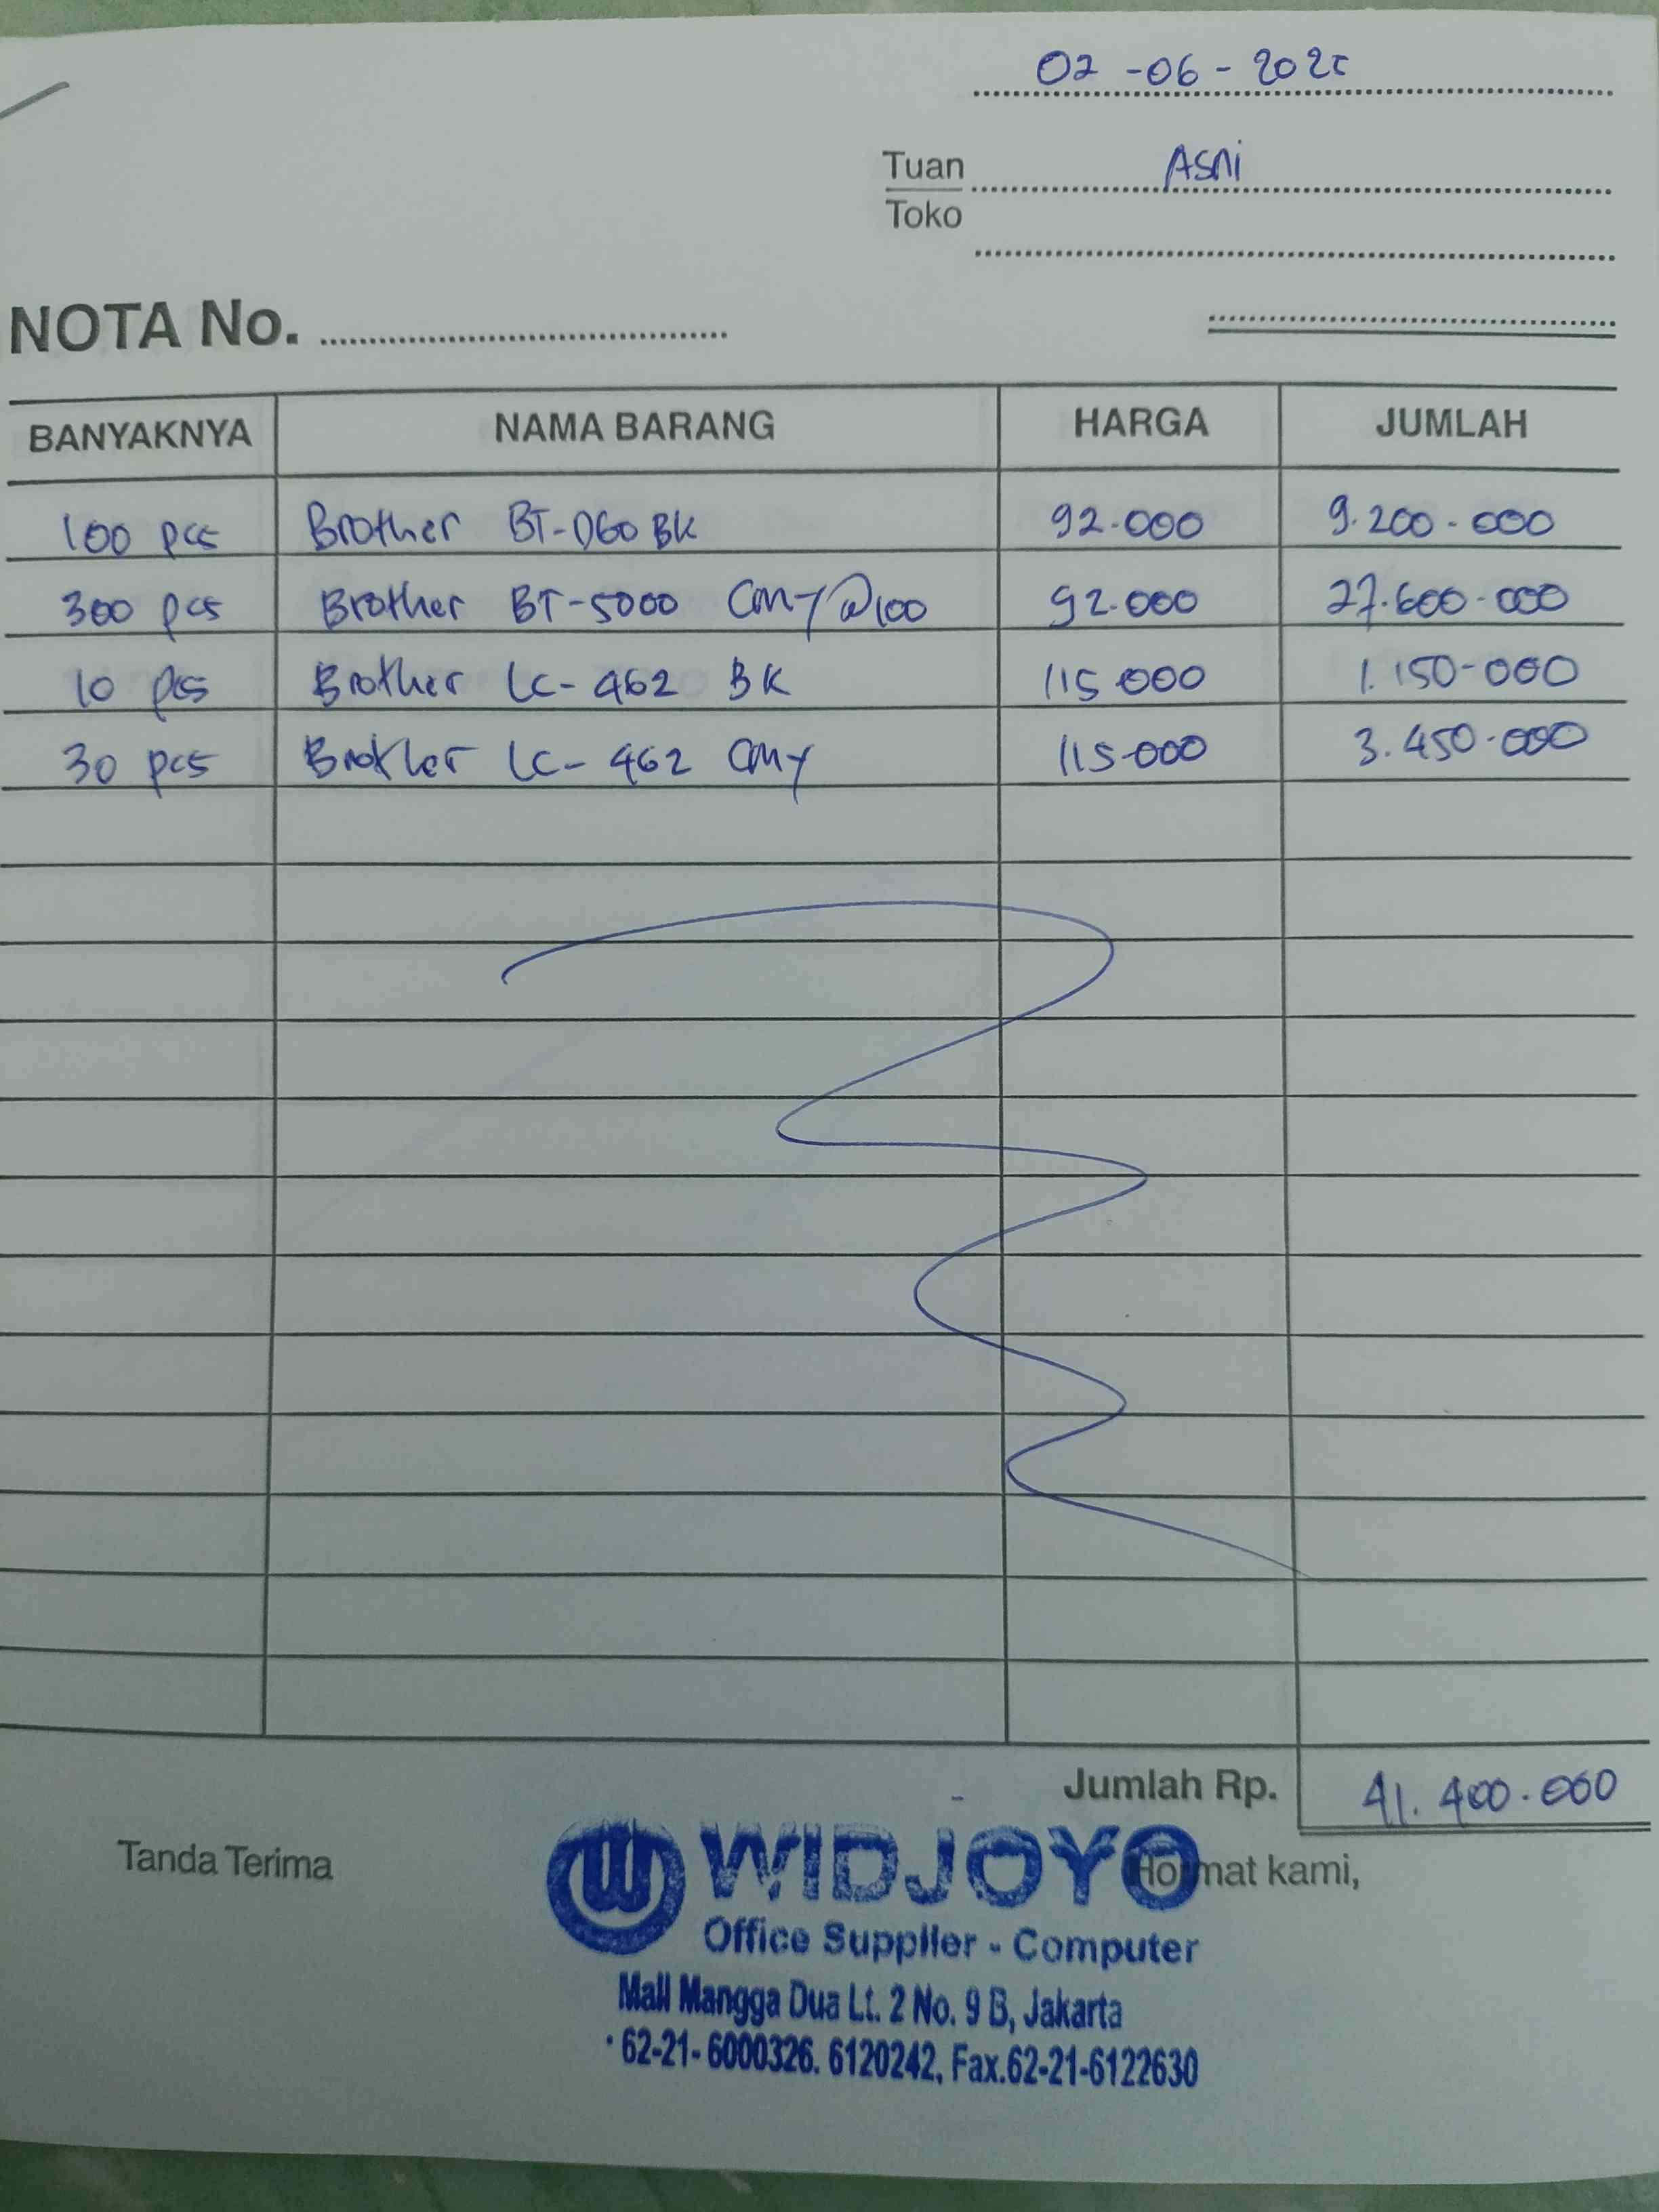 02-06-2025
Tuan Asni
Toko
NOTA No.
BANYAKNYA NAMA BARANG HARGA JUMLAH
100 pcs Brother BT-D60 BK 92.000 9.200.000
300 pcs Brother BT-5000 CMY @100 92.000 27.600.000
10 pcs Brother LC-462 BK 115.000 1.150.000
30 pcs Brother LC-462 CMY 115.000 3.450.000
Jumlah Rp. 41.400.000
Tanda Terima Hormat kami,
WIDJOYO
Office Supplier - Computer
Mall Mangga Dua Lt. 2 No. 9 B, Jakarta
62-21-6000326. 6120242, Fax.62-21-6122630